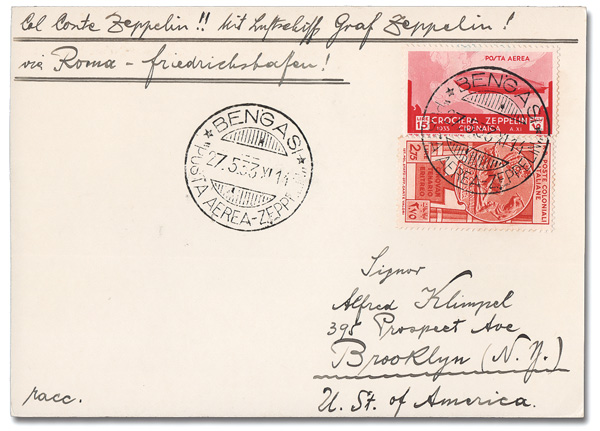 Col Conte Zeppelin!! Mit Luftschiff Graf Zeppelin!
via Roma - Friedrichshafen!
POSTA AEREA
CROCIERA ZEPPELIN
1933 CIRENAICA A.XI
LIRE 15
BENGASI
27.5.33.XI.14
POSTA AEREA-ZEPPELIN
BENGASI
AEREA-ZEPPELIN
2,75
POSTE COLONIALI
ITALIANE
Signor
Alfred Klimpel
395 Prospect Ave
Brooklyn (N.Y.)
U. St. of America.
racc.